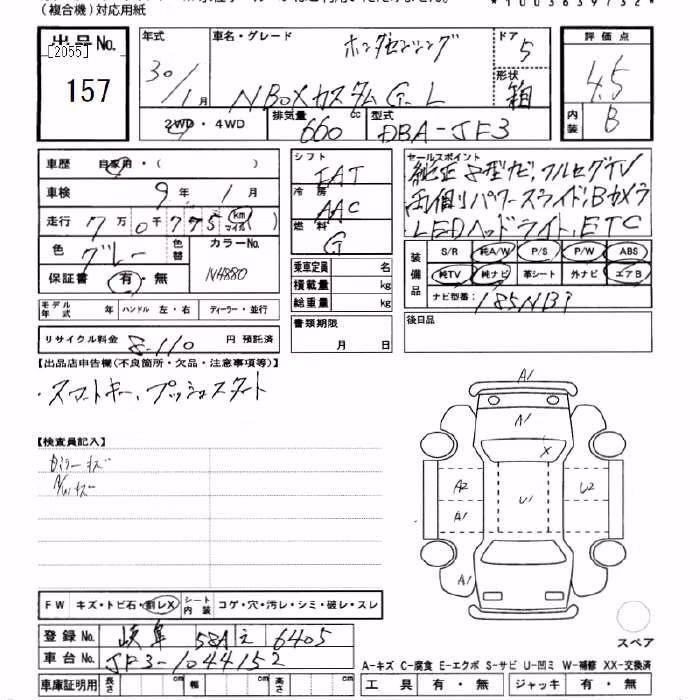 (複合機)対応用紙
*1003639732*
出品No.
[2055]
157
年式
30/1月
車名・グレード
ホンダセンシング
NBOXカスタム G.L
ドア
5
形状
箱
評価点
4.5
内装
B
2WD・4WD
排気量
660
cc
型式
DBA-JF3
車歴
自家用・( )
車検
9年1月
走行
7万0千775
km
マイル
色
グレー
色替
カラーNo.
NH880
保証書
有・無
モデル年式
年
ハンドル 左・右
ディーラー・並行
リサイクル料金
8-110
円 預託済
シフト
IAT
冷房
AAC
燃料
G
乗車定員
名
積載量
kg
総重量
kg
書類期限
月 日
セールスポイント
純正8型ナビ,フルセグTV
両側パワースライド,Bカメラ
LEDヘッドライト,ETC
装備品
S/R
純A/W
P/S
P/W
ABS
純TV
純ナビ
革シート
外ナビ
エアB
ナビ型番:
185NBi
後日品
【出品店申告欄(不良箇所・欠品・注意事項等)】
・スマートキー,プッシュスタート
【検査員記入】
Gミラーキズ
A/Wキズ
A1
A1
X
A2
U1
U2
A1
A1
FW
キズ・トビ石・割レX
シート内装
コゲ・穴・汚レ・シミ・破レ・スレ
登録No.
岐阜 581 え 6405
車台No.
JF3-1044152
車庫証明用
長さ
cm
幅
cm
高さ
cm
スペア
A-キズ C-腐食 E-エクボ S-サビ U-凹ミ W-補修 XX-交換済
工具
有・無
ジャッキ
有・無